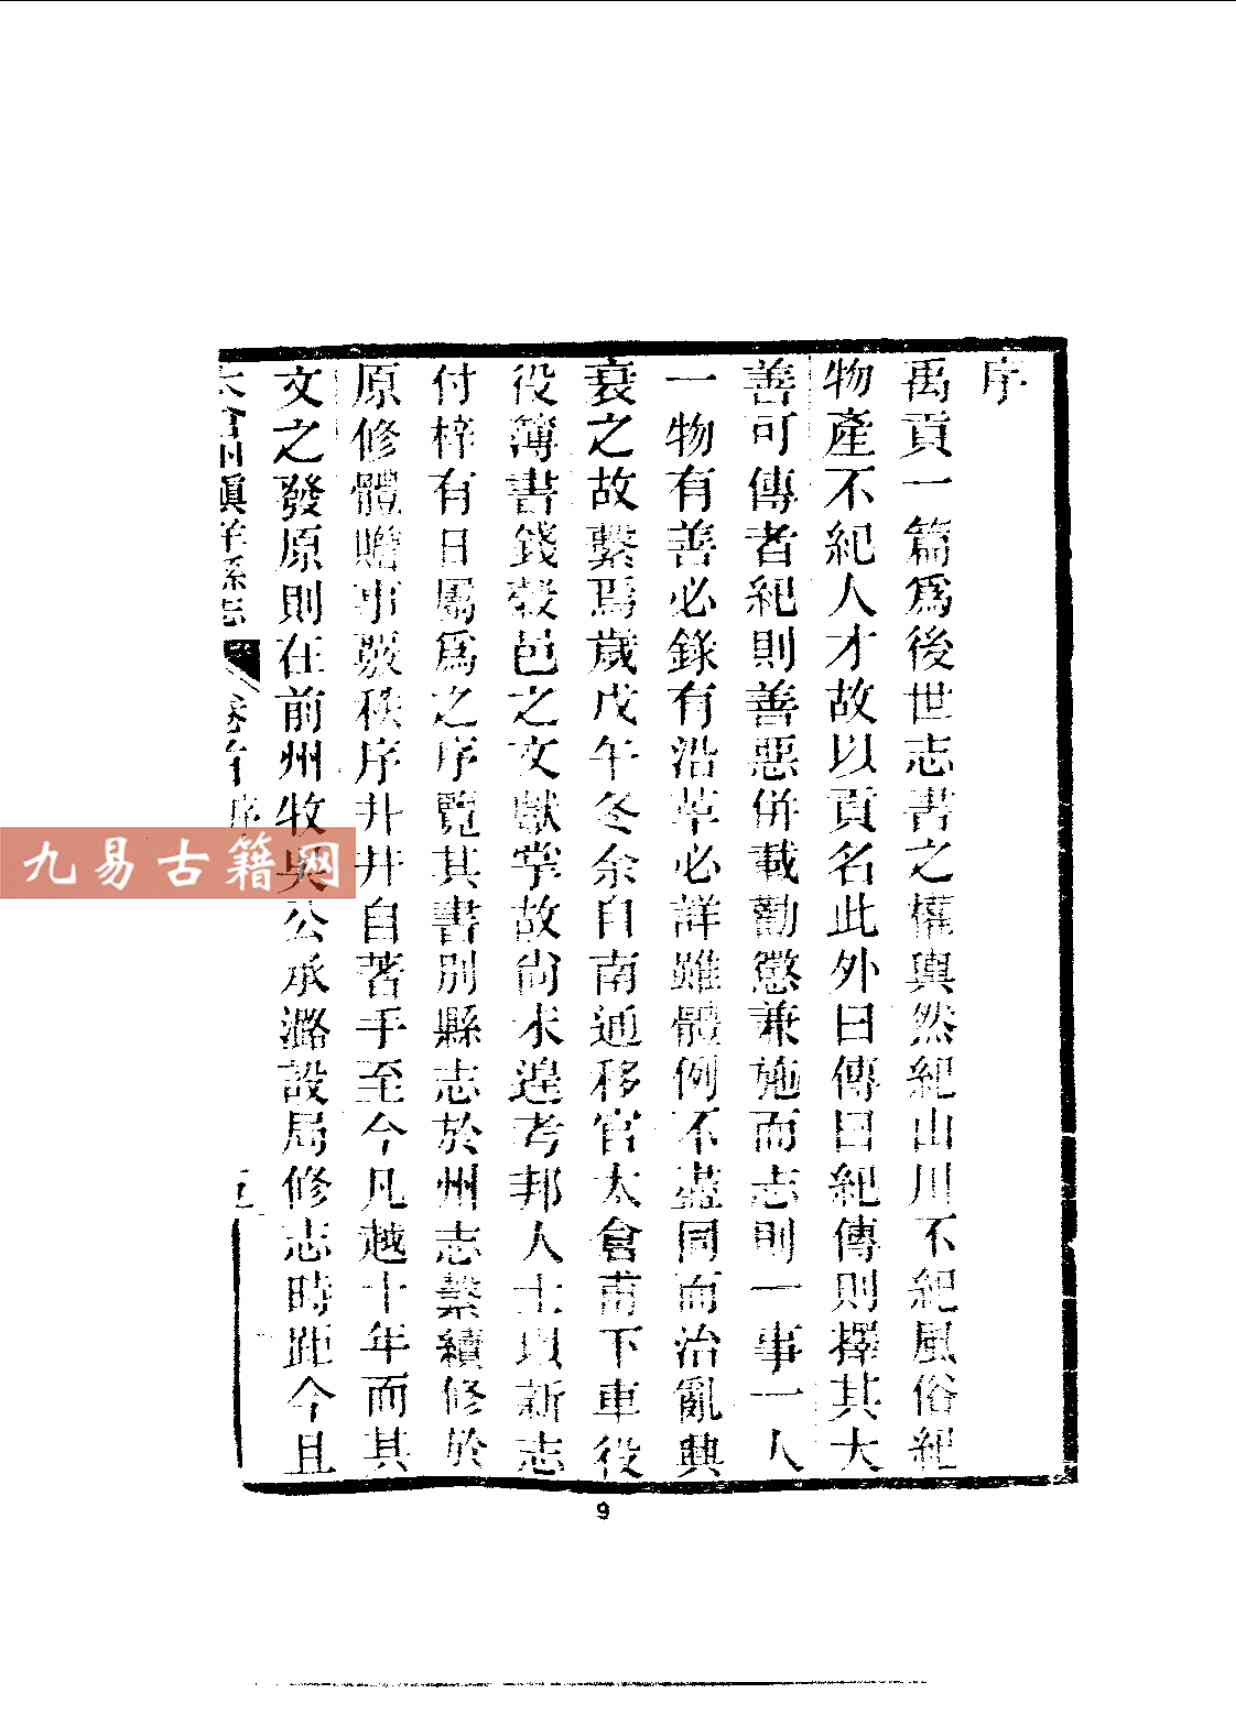 序
禹貢一篇爲後世志書之權輿然紀山川不紀風俗紀
物產不紀人才故以貢名此外曰傳曰紀傳則擇其大
善可傳者紀則善惡併載勸懲兼施而志則一事一人
一物有善必錄有沿革必詳雖體例不盡同而治亂興
衰之故繫焉歲戊午冬余自南通移官太倉甫下車役
役簿書錢穀邑之文獻掌故尙未遑考邦人士以新志
付梓有日屬爲之序覽其書別縣志於州志繫續修於
原修體贍事覈秩序井井自著手至今凡越十年而其
文之發原則在前州牧吳公承潞設局修志時距今且
太倉州鎭洋縣志 卷首序
五
9
九易古籍网